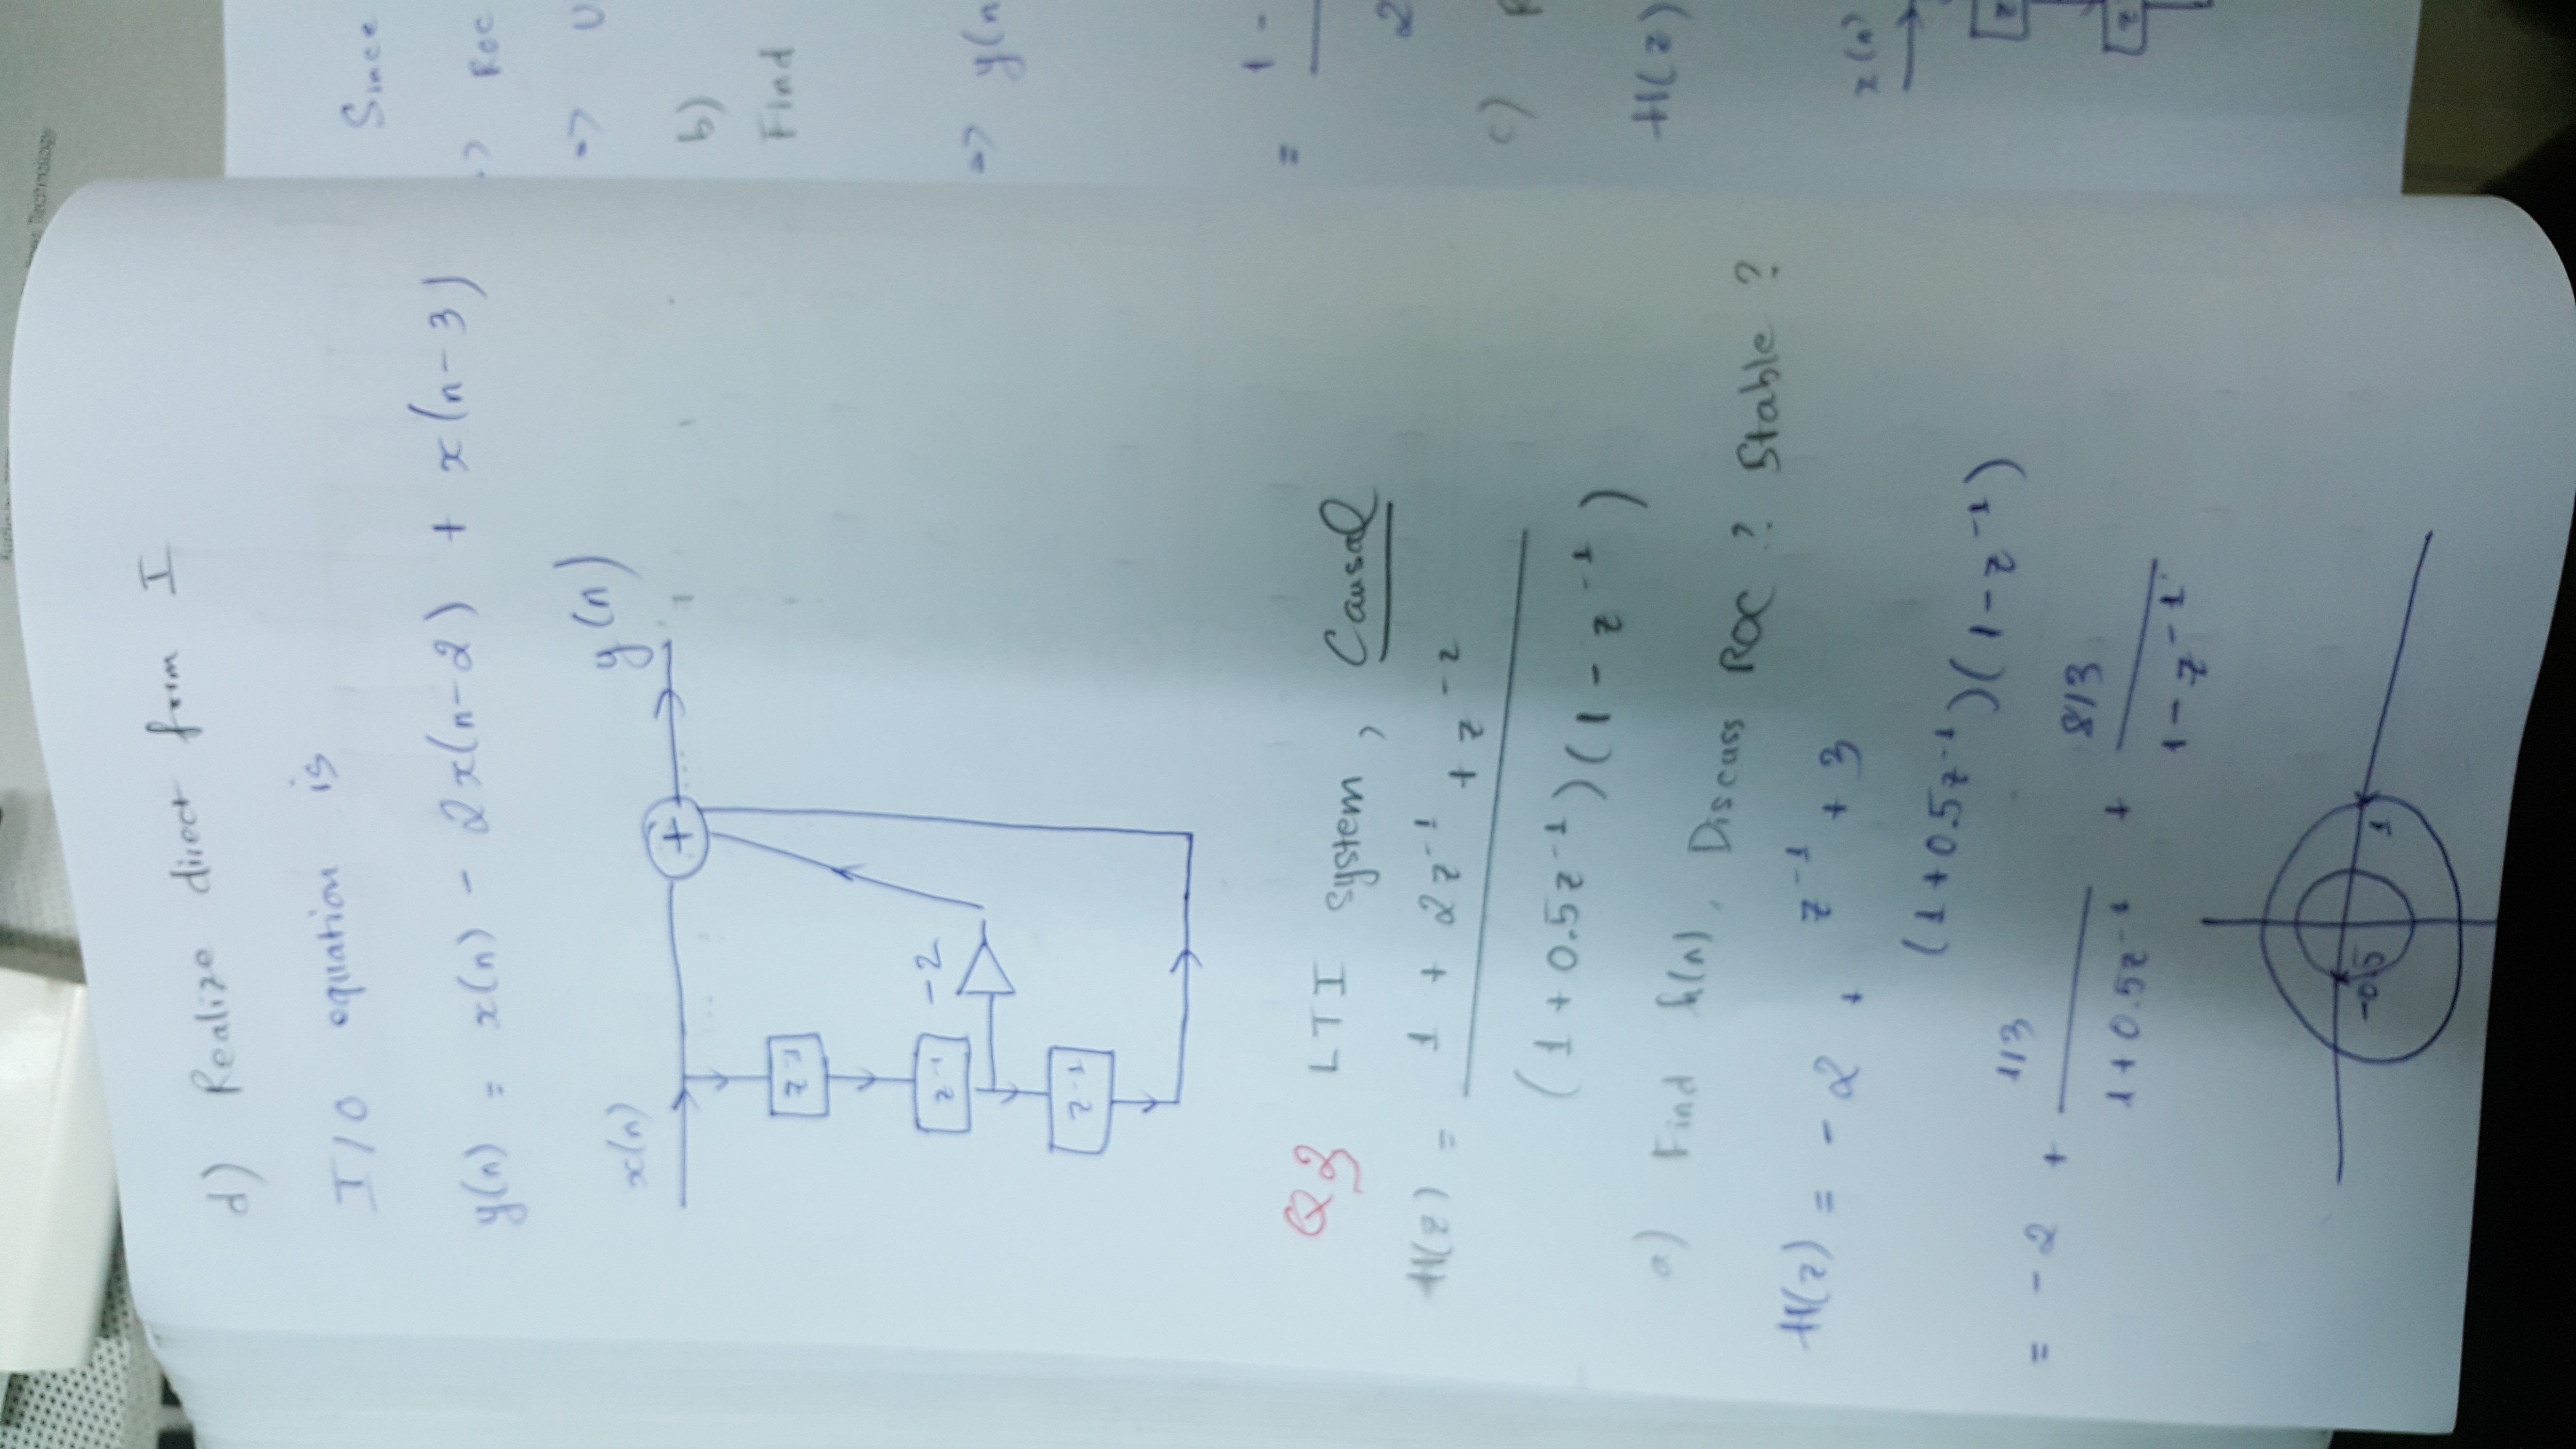 Technology
d) Realize direct form I
I/O equation is
y(n) = x(n) - 2x(n-2) + x(n-3)
x(n)
y(n)
+
z⁻¹
z⁻¹
-2
z⁻¹
Q3 LTI system, Causal
H(z) = 1 + 2z⁻¹ + z⁻²
(1 + 0.5z⁻¹)(1 - z⁻¹)
a) Find h(n), Discuss ROC? Stable?
H(z) = -2 + z⁻¹ + 3
(1+0.5z⁻¹)(1-z⁻¹)
= -2 + 1/3 + 8/3
1+0.5z⁻¹ 1-z⁻¹
-0.5 1
Since
=> ROC
=> U
b)
Find
=> y(n
= 1 -
2
c)
H(z)
x(n)
z
z